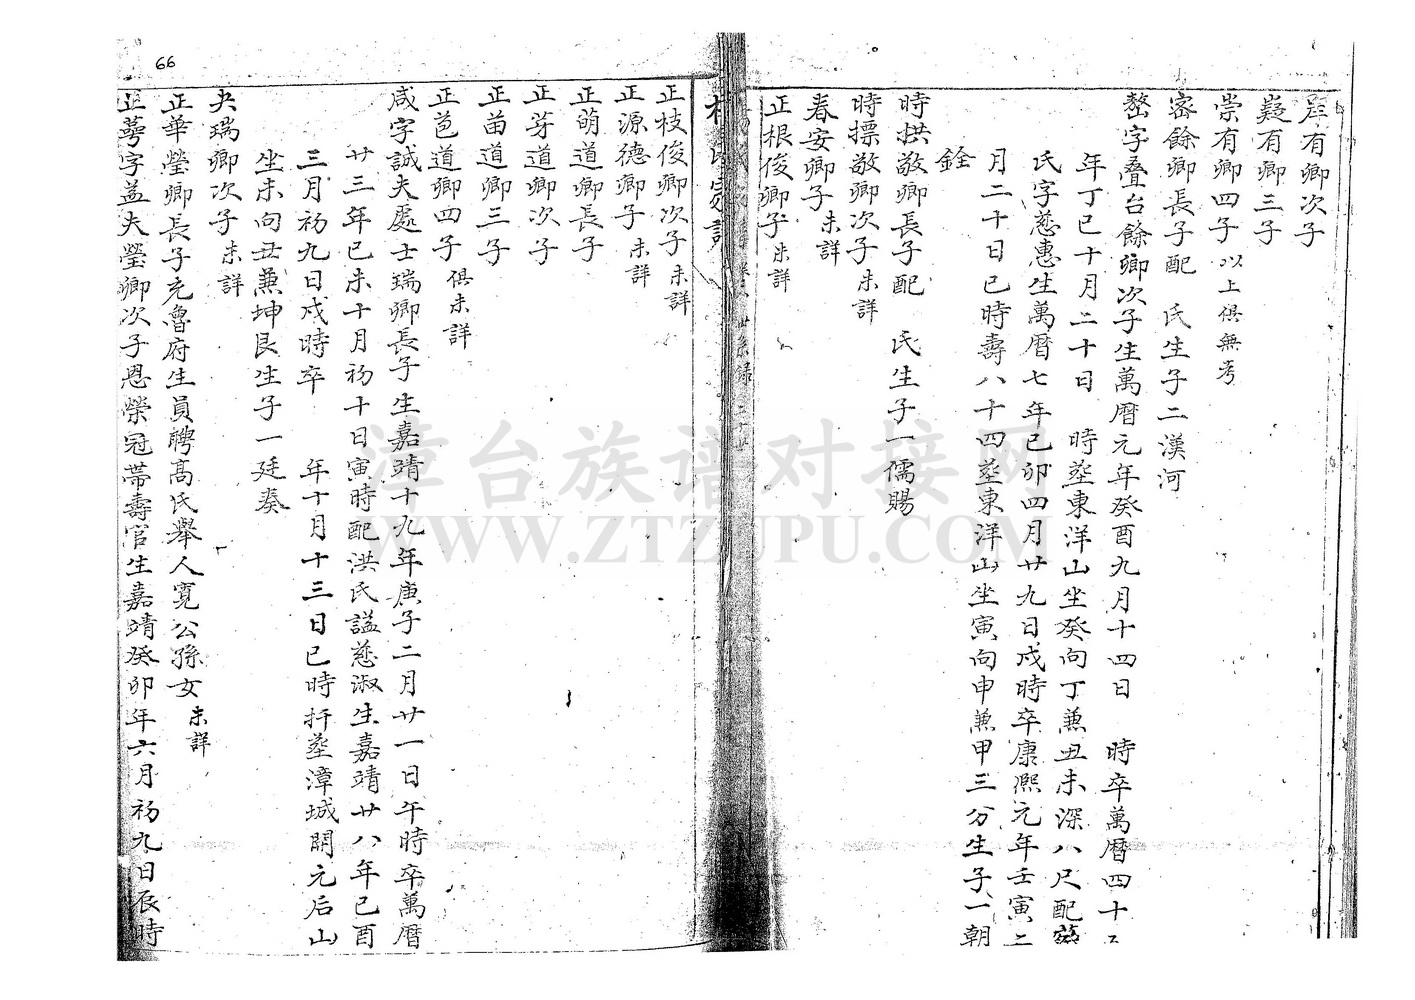 有卿次子
嶷有卿三子
崇有卿四子以上俱無考
密餘卿長子配 氏生子二漢河
嶅字叠台餘卿次子生萬曆元年癸酉九月十四日 時卒萬曆四十五
年丁巳十月二十日 時塟東洋山坐癸向丁兼丑未深八尺配蔡
氏字慈惠生萬曆七年己卯四月廿九日戌時卒康熙元年壬寅二
月二十日巳時壽八十四塟東洋山坐寅向申兼甲三分生子一朝
銓
時拱敬卿長子配 氏生子一儒賜
時摽敬卿次子未詳
春安卿子未詳
正根俊卿子未詳
世系録
正枝俊卿次子未詳
正源德卿子未詳
正萌道卿長子
正芽道卿次子
正苗道卿三子
正芭道卿四子俱未詳
咸字誠夫處士瑞卿長子生嘉靖十九年庚子二月廿一日午時卒萬曆
廿三年巳未十月初十日寅時配洪氏謚慈淑生嘉靖廿八年己酉
三月初九日戌時卒 年十月十三日巳時扦塟漳城開元后山
坐未向丑兼坤艮生子一廷奏
夬瑞卿次子未詳
正華瑩卿長子充魯府生員聘高氏舉人寛公孫女未詳
正蕚字盖夫瑩卿次子恩榮冠帶壽官生嘉靖癸卯年六月初九日辰時
66
漳台族谱对接网
WWW.ZTZUPU.COM